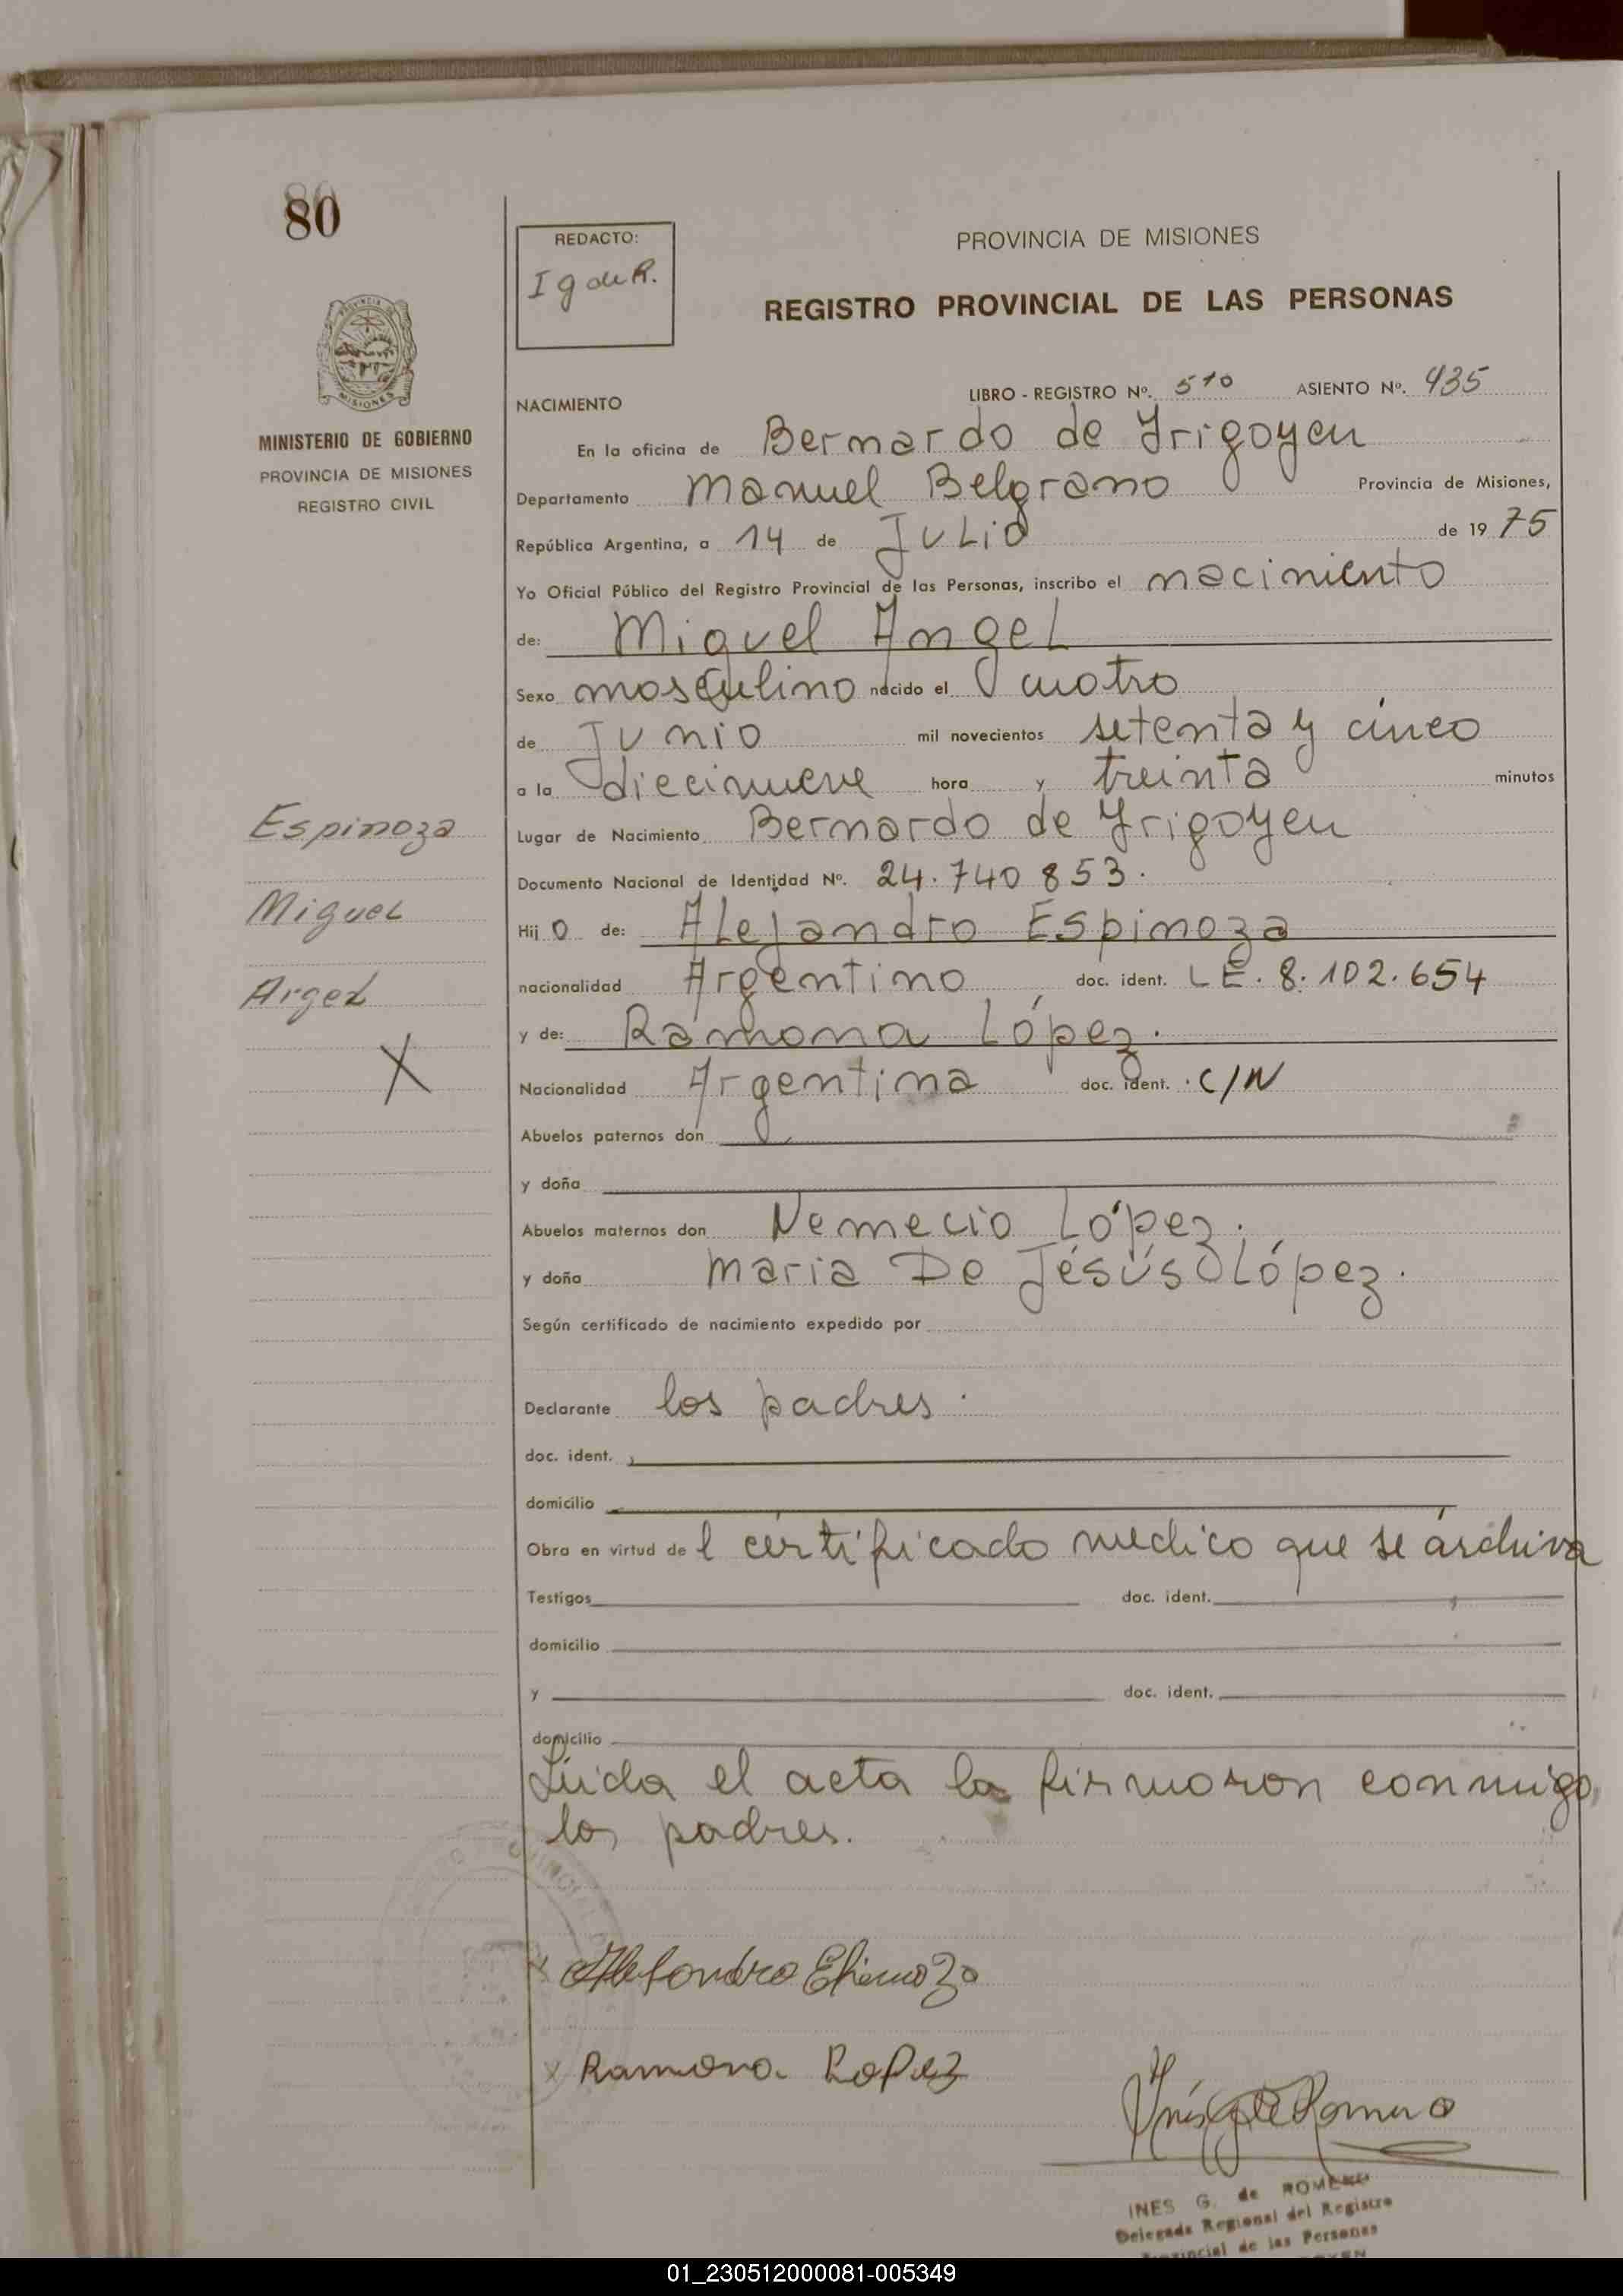 80
REDACTO:
I g de R.
PROVINCIA DE MISIONES
REGISTRO PROVINCIAL DE LAS PERSONAS
PROVINCIA
MISIONES
MINISTERIO DE GOBIERNO
PROVINCIA DE MISIONES
REGISTRO CIVIL
LIBRO - REGISTRO Nº. 510 ASIENTO Nº. 435
NACIMIENTO
En la oficina de Bernardo de Yrigoyen
Departamento Manuel Belgrano Provincia de Misiones,
República Argentina, a 14 de Julio de 19 75
Yo Oficial Público del Registro Provincial de las Personas, inscribo el nacimiento
de: Miguel Angel
Sexo masculino nacido el cuatro
de Junio mil novecientos setenta y cinco
a la diecinueve hora y treinta minutos
Lugar de Nacimiento Bernardo de Yrigoyen
Documento Nacional de Identidad Nº. 24.740 853.
Hij o de: Alejandro Espinoza
nacionalidad Argentino doc. ident. LE. 8.102.654
y de: Ramona López.
Nacionalidad Argentina doc. ident. C/N
Abuelos paternos don
y doña
Abuelos maternos don Nemecio López.
y doña Maria De Jésús López.
Según certificado de nacimiento expedido por
Declarante los padres.
doc. ident.
domicilio
Obra en virtud de l certificado medico que se archiva
Testigos doc. ident.
domicilio
y doc. ident.
domicilio
Leida el acta la firmaron conmigo,
los padres.
Espinoza
Miguel
Angel
X
x
x Ramona Lopez
Inés G de Romero
INES G. de ROMERO
Delegada Regional del Registro
Provincial de las Personas
01_230512000081-005349